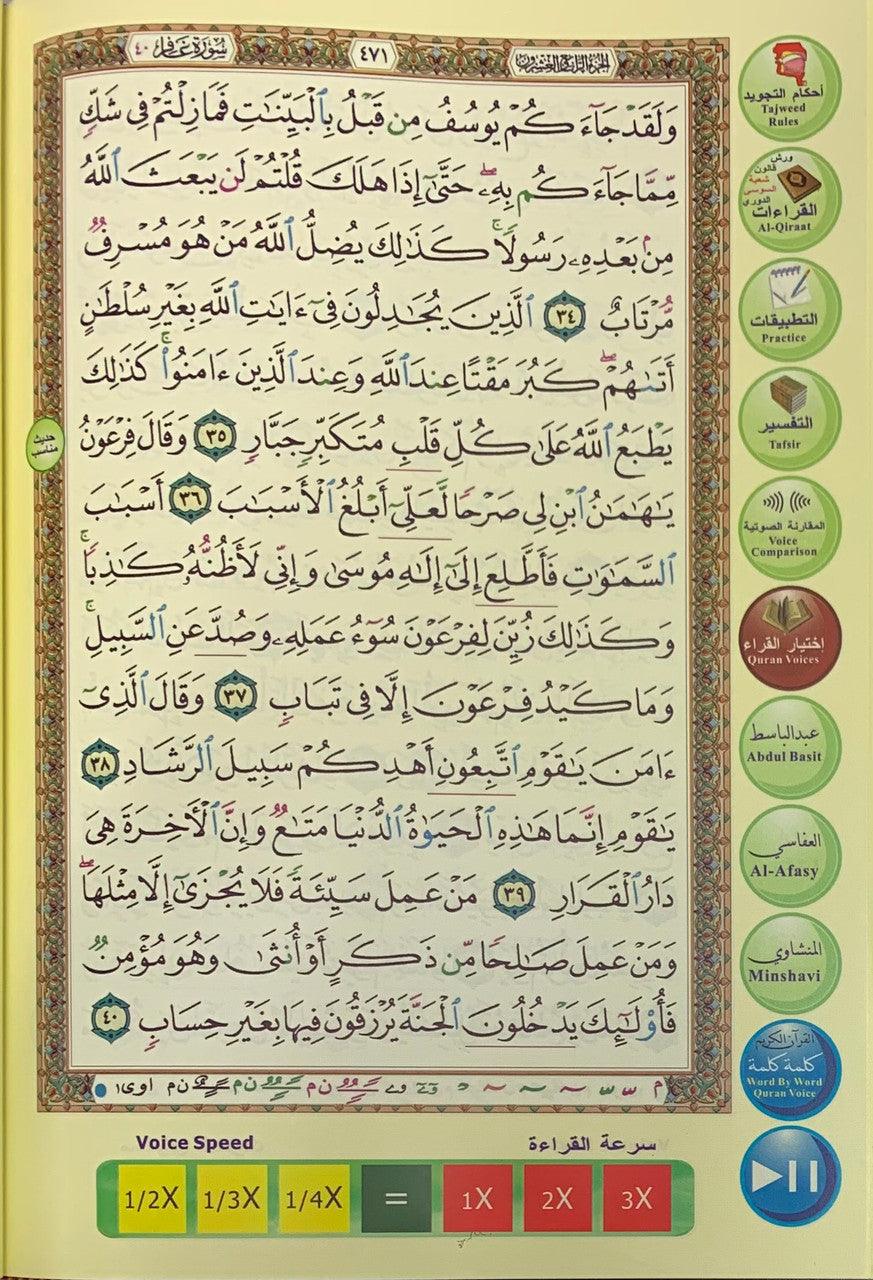 سورة غافر ٤٠
٤٧١
الجزء الرابع والعشرون
وَلَقَدْ جَآءَكُمْ يُوسُفُ مِن قَبْلُ بِٱلْبَيِّنَٰتِ فَمَا زِلْتُمْ فِى شَكٍّ
مِّمَّا جَآءَكُم بِهِۦ ۖ حَتَّىٰٓ إِذَا هَلَكَ قُلْتُمْ لَن يَبْعَثَ ٱللَّهُ
مِنۢ بَعْدِهِۦ رَسُولًا ۚ كَذَٰلِكَ يُضِلُّ ٱللَّهُ مَنْ هُوَ مُسْرِفٌ
مُّرْتَابٌ ٣٤ ٱلَّذِينَ يُجَٰدِلُونَ فِىٓ ءَايَٰتِ ٱللَّهِ بِغَيْرِ سُلْطَٰنٍ
أَتَىٰهُمْ ۖ كَبُرَ مَقْتًا عِندَ ٱللَّهِ وَعِندَ ٱلَّذِينَ ءَامَنُوا۟ ۚ كَذَٰلِكَ
يَطْبَعُ ٱللَّهُ عَلَىٰ كُلِّ قَلْبِ مُتَكَبِّرٍ جَبَّارٍ ٣٥ وَقَالَ فِرْعَوْنُ
يَٰهَٰمَٰنُ ٱبْنِ لِى صَرْحًا لَّعَلِّىٓ أَبْلُغُ ٱلْأَسْبَٰبَ ٣٦ أَسْبَٰبَ
ٱلسَّمَٰوَٰتِ فَأَطَّلِعَ إِلَىٰٓ إِلَٰهِ مُوسَىٰ وَإِنِّى لَأَظُنُّهُۥ كَٰذِبًا ۚ
وَكَذَٰلِكَ زُيِّنَ لِفِرْعَوْنَ سُوٓءُ عَمَلِهِۦ وَصُدَّ عَنِ ٱلسَّبِيلِ ۚ
وَمَا كَيْدُ فِرْعَوْنَ إِلَّا فِى تَبَابٍ ٣٧ وَقَالَ ٱلَّذِىٓ
ءَامَنَ يَٰقَوْمِ ٱتَّبِعُونِ أَهْدِكُمْ سَبِيلَ ٱلرَّشَادِ ٣٨
يَٰقَوْمِ إِنَّمَا هَٰذِهِ ٱلْحَيَوٰةُ ٱلدُّنْيَا مَتَٰعٌ وَإِنَّ ٱلْءَاخِرَةَ هِىَ
دَارُ ٱلْقَرَارِ ٣٩ مَنْ عَمِلَ سَيِّئَةً فَلَا يُجْزَىٰٓ إِلَّا مِثْلَهَا ۖ
وَمَنْ عَمِلَ صَٰلِحًا مِّن ذَكَرٍ أَوْ أُنثَىٰ وَهُوَ مُؤْمِنٌ
فَأُو۟لَٰٓئِكَ يَدْخُلُونَ ٱلْجَنَّةَ يُرْزَقُونَ فِيهَا بِغَيْرِ حِسَابٍ ٤٠
حديث مناسب
أحكام التجويد
Tajweed
Rules
ورش
قالون
شعبة
السوسي
الدوري
القراءات
Al-Qiraat
التطبيقات
Practice
التفسير
Tafsir
المقارنة الصوتية
Voice
Comparison
إختيار القراء
Quran Voices
عبدالباسط
Abdul Basit
العفاسي
Al-Afasy
المنشاوي
Minshavi
القرآن الكريم
كلمة كلمة
Word By Word
Quran Voice
Voice Speed
سرعة القراءة
1/2X 1/3X 1/4X = 1X 2X 3X